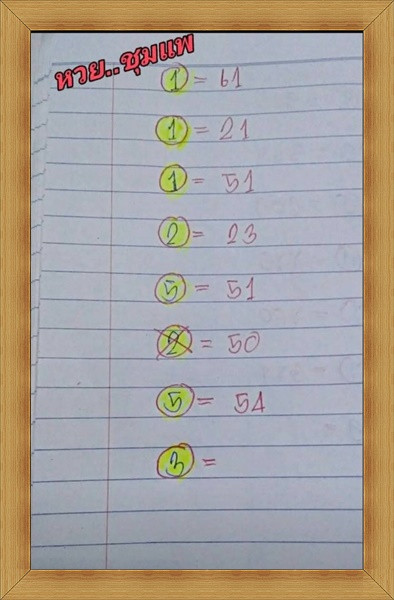 หวย..ชุมแพ
1 = 61
1 = 21
1 = 51
2 = 23
5 = 51
2 = 50
5 = 54
3 =